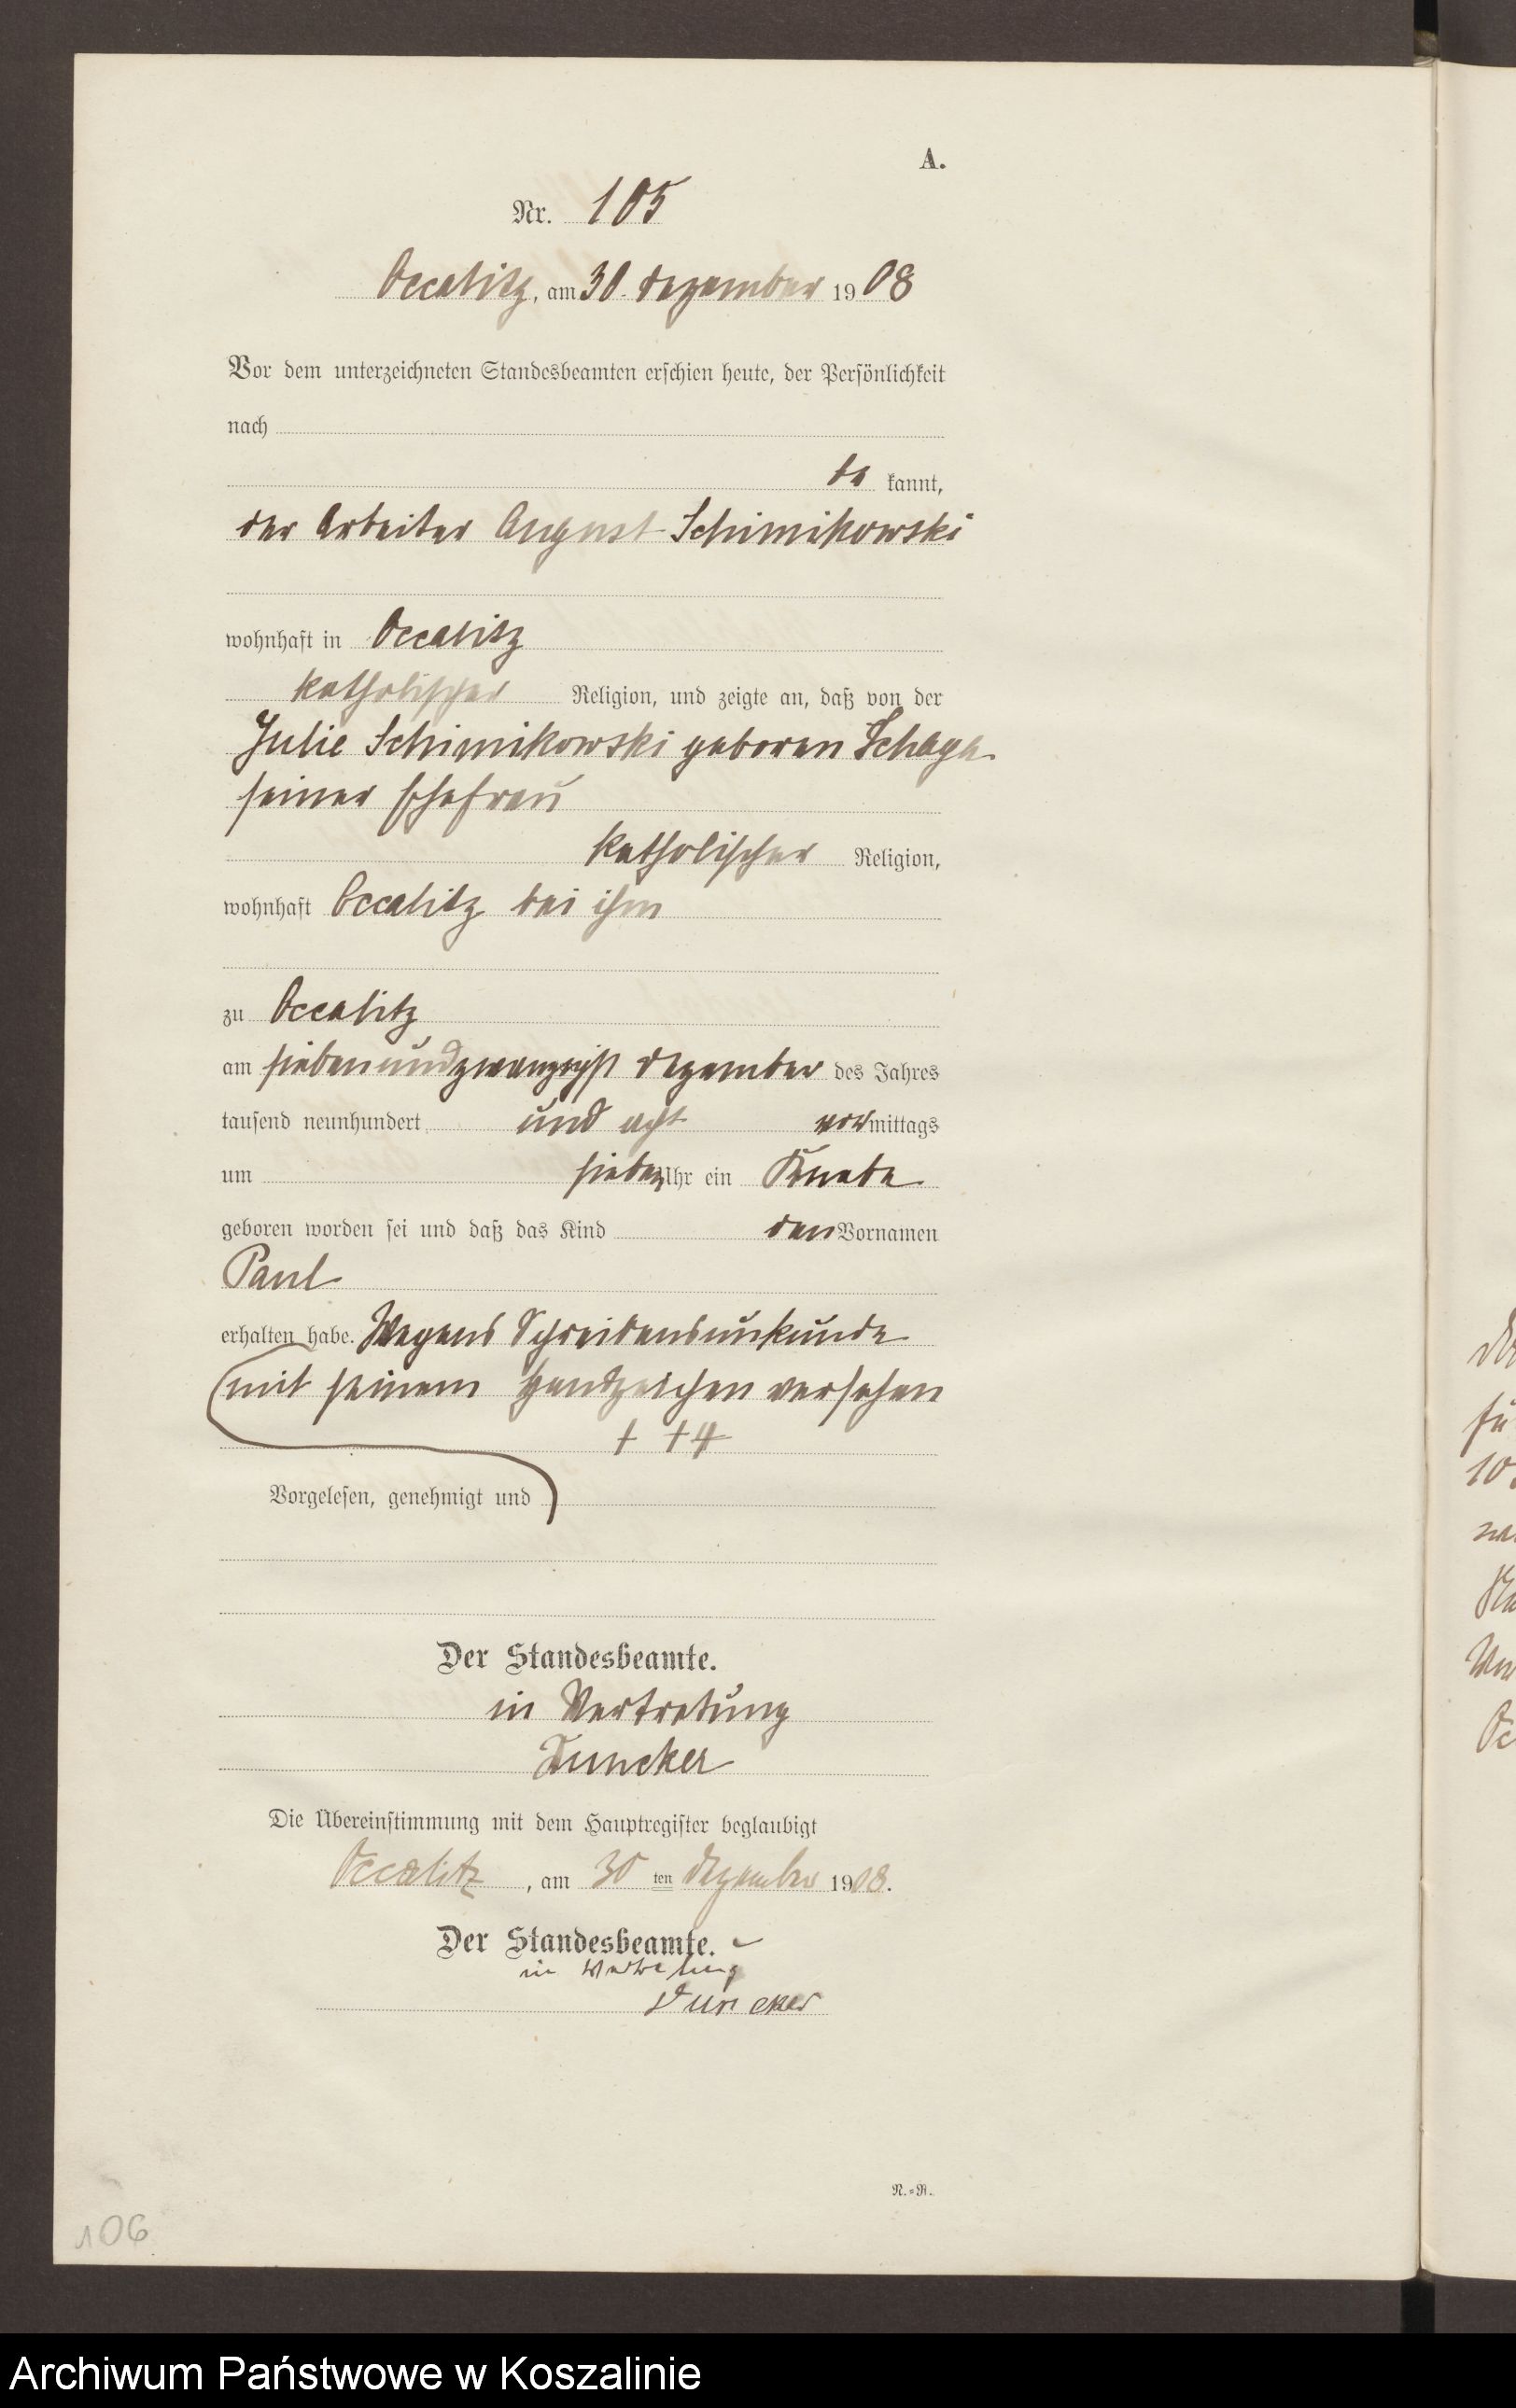 A.
Nr. 105
Occalitz, am 30. Dezember 1908
Vor dem unterzeichneten Standesbeamten erschien heute, der Persönlichkeit
nach
be kannt,
der Arbeiter August Schimikowski
wohnhaft in Occalitz
katholischer Religion, und zeigte an, daß von der
Julie Schimikowski geboren
seiner Ehefrau
katholischer Religion,
wohnhaft Occalitz bei ihm
zu Occalitz
am siebenundzwanzigst Dezember des Jahres
tausend neunhundert und acht vormittags
um sieben Uhr ein Knabe
geboren worden sei und daß das Kind den Vornamen
Paul
erhalten habe. Wegens Schreibensunkunde
mit seinem Handzeichen versehen
+ ++
Vorgelesen, genehmigt und
Der Standesbeamte.
in Vertretung
Duncker
Die Übereinstimmung mit dem Hauptregister beglaubigt
Occalitz, am 30 ten Dezember 1908.
Der Standesbeamte.
in Vertretung
Duncker
N.=R.
106
10
Archiwum Państwowe w Koszalinie